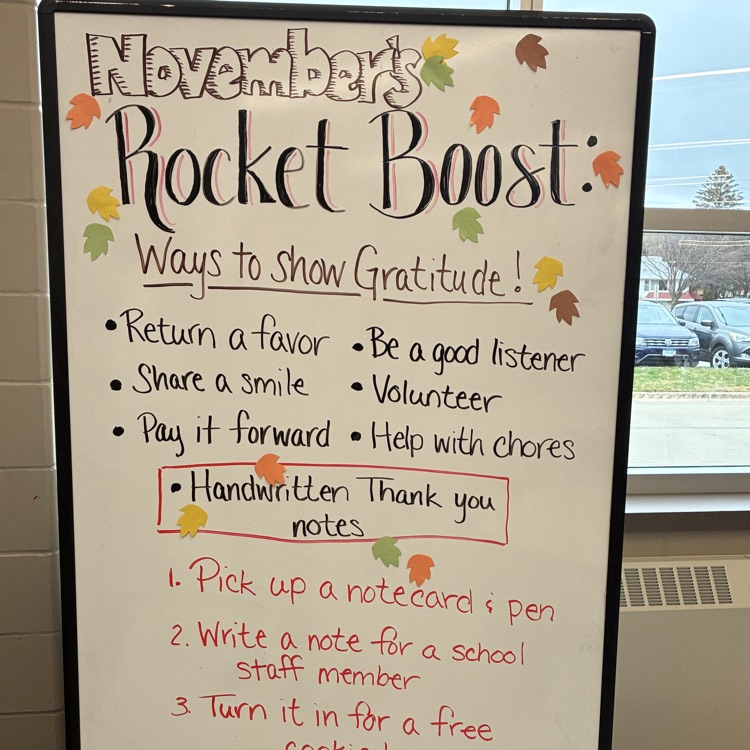 November's
Rocket Boost:
Ways to show Gratitude!
• Return a favor
• Share a smile
• Pay it forward
• Be a good listener
• Volunteer
• Help with chores
• Handwritten Thank you
notes
1. Pick up a notecard & pen
2. Write a note for a school
staff member
3. Turn it in for a free
cookie!